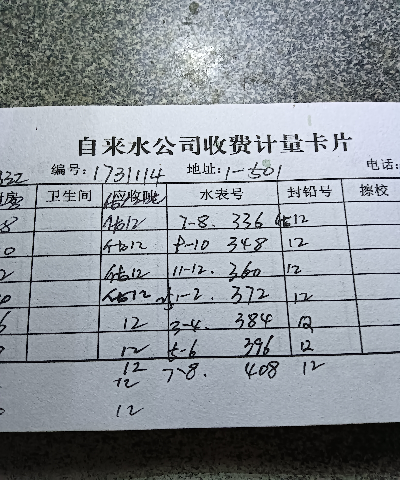 自来水公司收费计量卡片
332 编号: 1731114 地址: 1-501 电话:
卫生间 水表号 封铅号 擦校
8 估12 7-8. 336 估12
0 估12 9-10 348 12
2 估12 11-12. 360 12
0 估12 1-2. 372 12
6 12 3-4. 384 12
12 5-6 396 12
12 7-8. 408 12
12
12